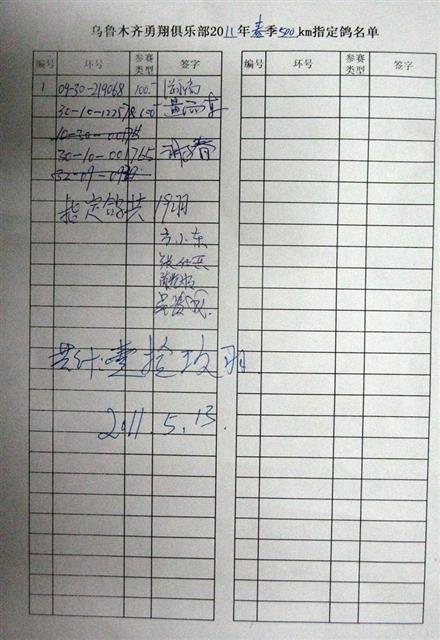 乌鲁木齐勇翔俱乐部2011年春季500km指定鸽名单
编号 环号 参赛类型 签字 编号 环号 参赛类型 签字
1 09-30-219068 100.-
30-10-122578 100-
10-30-00175
30-10-001765
32-09-
指定鸽共 19羽
方小东
共计:壹拾玖羽.
2011.5.13.